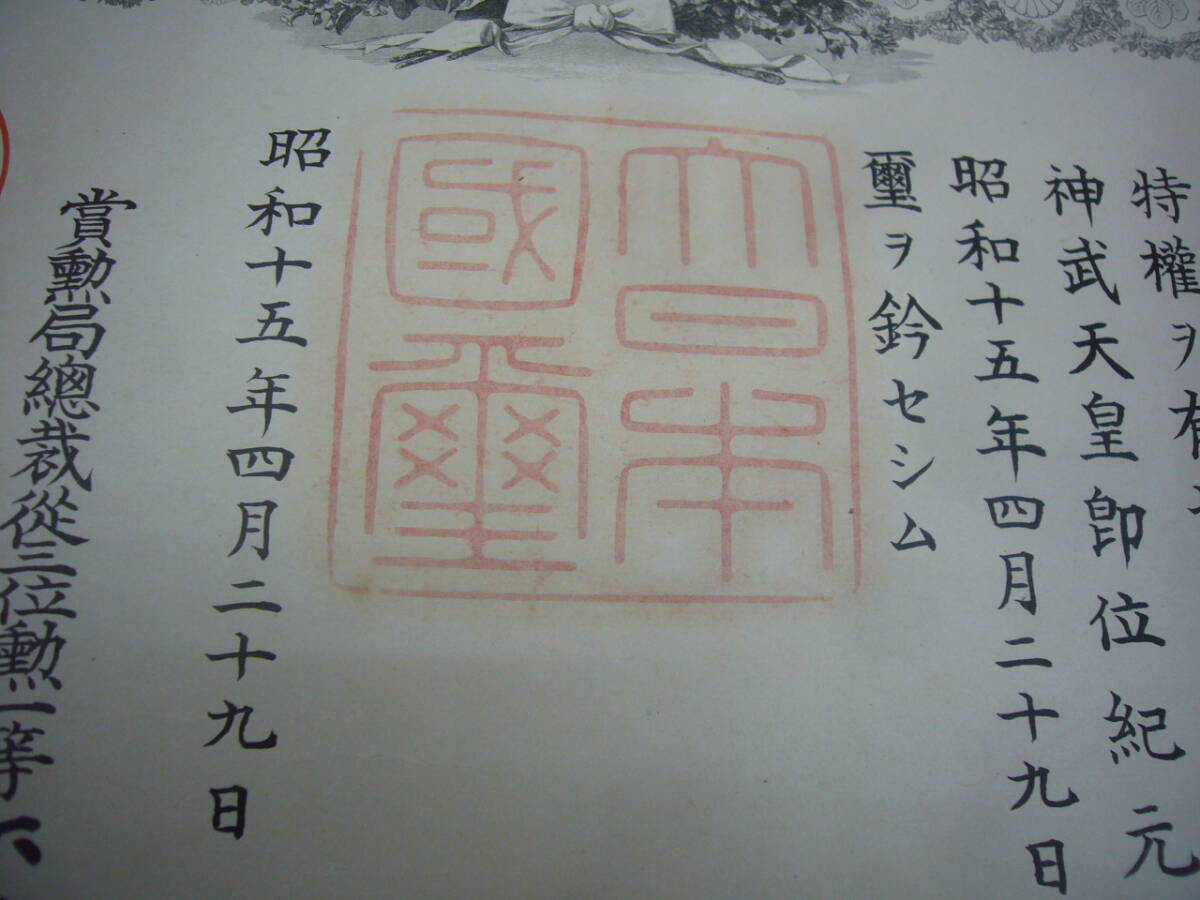 特權ヲ有
神武天皇卽位紀元
昭和十五年四月二十九日
璽ヲ鈐セシム
大日本
國璽
昭和十五年四月二十九日
賞勲局總裁從三位勲一等